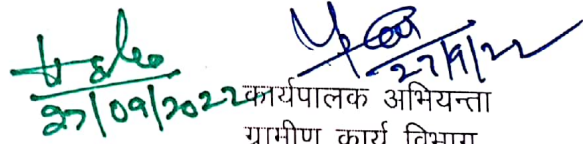 27/09/2022
27/9/22
कार्यपालक अभियन्ता
ग्रामीण कार्य विभाग